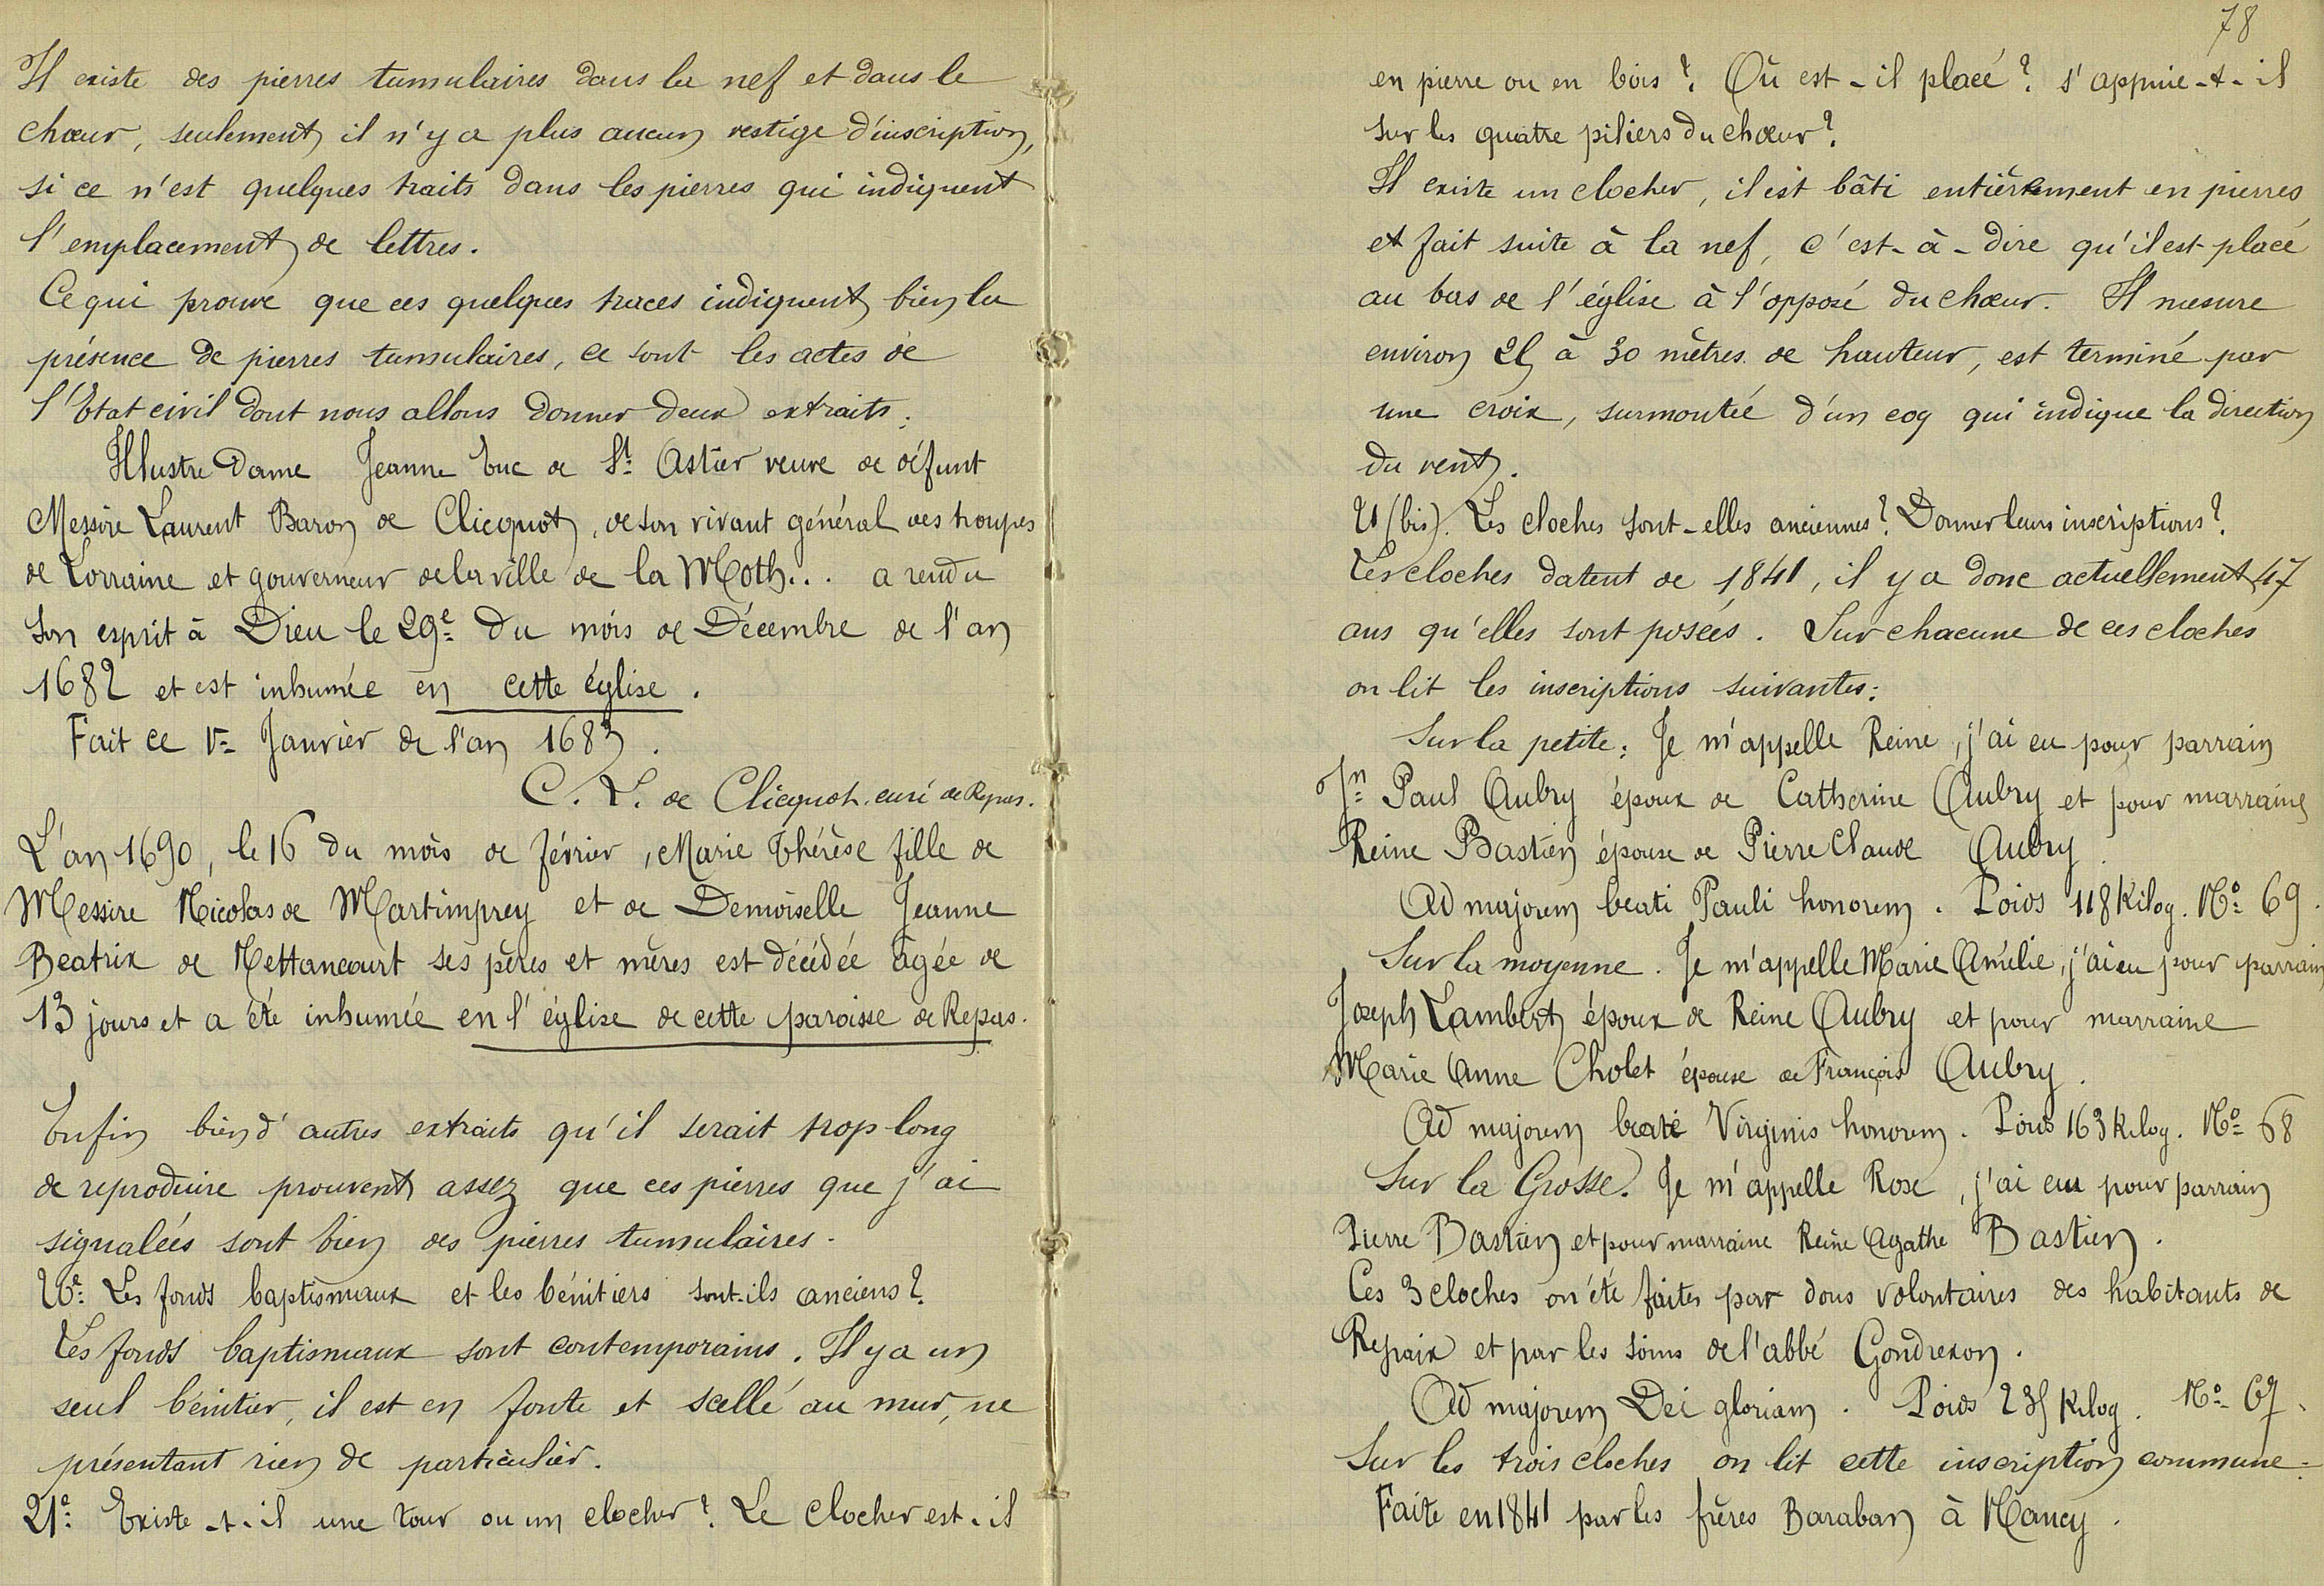 Il existe des pierres tumulaires dans la nef et dans le
chœur, seulement il n'y a plus aucun vestige d'inscription,
si ce n'est quelques traits dans les pierres qui indiquent
l'emplacement de lettres.
Ce qui prouve que ces quelques traces indiquent bien la
présence de pierres tumulaires, ce sont les actes de
l'Etat civil dont nous allons donner deux extraits:
Illustre Dame Jeanne de St. Astier veuve de défunt
Messire Laurent Baron de Clicquot, de son vivant général des troupes
de Lorraine et gouverneur de la ville de la Moth... a rendu
son esprit à Dieu le 29e du mois de Décembre de l'an
1682 et est inhumée en cette église.
Fait ce 1er Janvier de l'an 1683.
C. L. de Clicquot curé de Repas.
L'an 1690, le 16 du mois de février, Marie Thérèse fille de
Messire Nicolas de Martimprey et de Demoiselle Jeanne
Beatrix de Nettancourt ses pères et mères est décédée âgée de
13 jours et a été inhumée en l'église de cette paroisse de Repas.
Enfin bien d'autres extraits qu'il serait trop long
de reproduire prouvent assez que ces pierres que j'ai
signalées sont bien des pierres tumulaires.
20e Les fonds baptismaux et les bénitiers sont-ils anciens?
Les fonds baptismaux sont contemporains. Il y a un
seul bénitier, il est en fonte et scellé au mur, ne
présentant rien de particulier.
21e Existe-t-il une tour ou un clocher? Le clocher est-il
78
en pierre ou en bois? Où est-il placé? s'appuie-t-il
sur les quatre piliers du chœur?
Il existe un clocher, il est bâti entièrement en pierres
et fait suite à la nef, c'est-à-dire qu'il est placé
au bas de l'église à l'opposé du chœur. Il mesure
environ 25 à 30 mètres de hauteur, est terminé par
une croix, surmontée d'un coq qui indique la direction
du vent.
21 (bis). Les cloches sont-elles anciennes? Donner leurs inscriptions?
Les cloches datent de 1841, il y a donc actuellement 47
ans qu'elles sont posées. Sur chacune de ces cloches
on lit les inscriptions suivantes:
Sur la petite: Je m'appelle Reine, j'ai eu pour parrain
Jn Paul Aubry époux de Catherine Aubry et pour marraine
Reine Bastien épouse de Pierre Claude Aubry.
Ad majorem beati Pauli honorem. Poids 118 Kilog. No 69.
Sur la moyenne. Je m'appelle Marie Amélie, j'ai eu pour parrain
Joseph Lambert époux de Reine Aubry et pour marraine
Marie Anne Cholet épouse de François Aubry.
Ad majorem beate Virginis honorem. Poids 163 Kilog. No 68
Sur la Grosse. Je m'appelle Rose, j'ai eu pour parrain
Pierre Bastien et pour marraine Reine Agathe Bastien.
Ces 3 cloches on été faites par dons volontaires des habitants de
Repaix et par les soins de l'abbé Gondrexon.
Ad majorem Dei gloriam. Poids 235 Kilog. No 67.
Sur les trois cloches on lit cette inscription commune:
Faite en 1841 par les frères Baraban à Nancy.